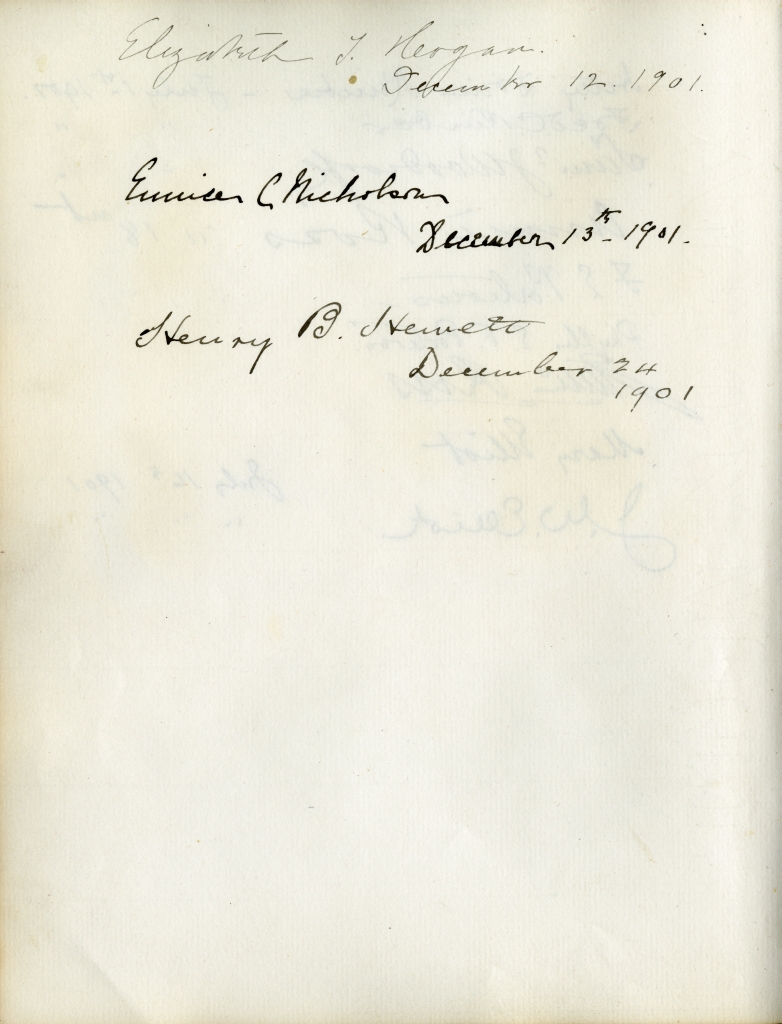 Elizabeth T. Hogan.
December 12. 1901.
Eunice C Nicholson
December 13th 1901.
Henry B. Hewett
December 24
1901